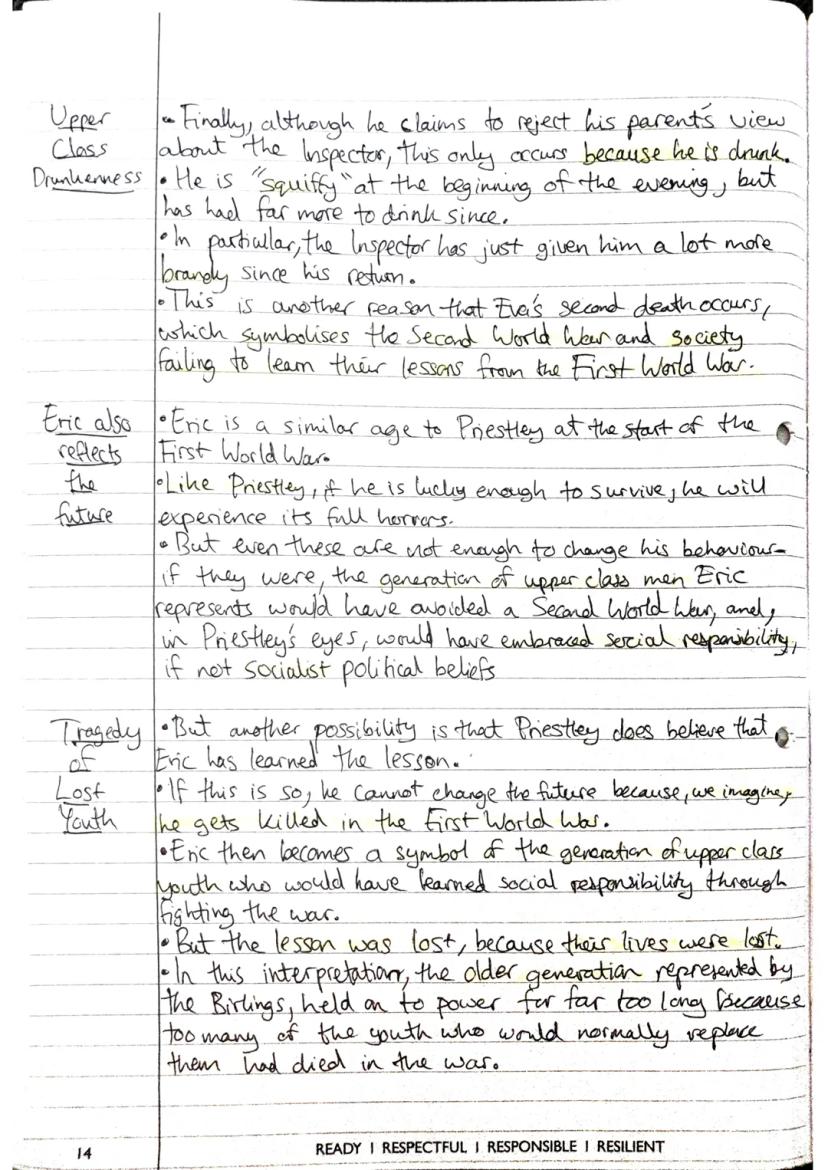 Upper
Class
Drunkenness
• Finally, although he claims to reject his parent's view
about the Inspector, this only occurs because he is drunk.
• He is "squiffy" at the beginning of the evening, but
has had far more to drink since.
• In particular, the Inspector has just given him a lot more
brandy since his return.
• This is another reason that Eva's second death occurs,
which symbolises the Second World War and society
failing to learn their lessons from the First World War.
Eric also
reflects
the
future
• Eric is a similar age to Priestley at the start of the
First World War.
• Like Priestley, if he is lucky enough to survive, he will
experience its full horrors.
• But even these are not enough to change his behaviour-
if they were, the generation of upper class men Eric
represents would have avoided a Second World War, and,
in Priestley's eyes, would have embraced social responsibility,
if not socialist political beliefs
Tragedy
of
Lost
Youth
• But another possibility is that Priestley does believe that
Eric has learned the lesson.
• If this is so, he cannot change the future because, we imagine,
he gets killed in the First World War.
• Eric then becomes a symbol of the generation of upper class
youth who would have learned social responsibility through
fighting the war.
• But the lesson was lost, because their lives were lost.
• In this interpretation, the older generation represented by
the Birlings, held on to power for far too long because
too many of the youth who would normally replace
them had died in the war.
14
READY | RESPECTFUL | RESPONSIBLE | RESILIENT